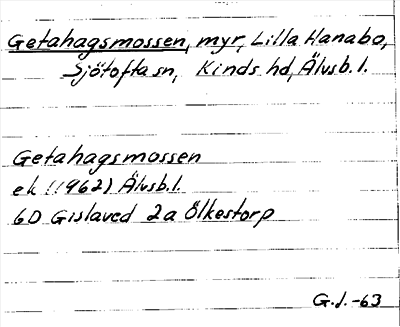 Getahagsmossen, myr, Lilla Hanabo,
Sjötofta sn, Kinds hd, Älvsb. l.
Getahagsmossen
ek (1962) Älvsb. l.
6D Gislaved 2a Ölkestorp
G.J. -63